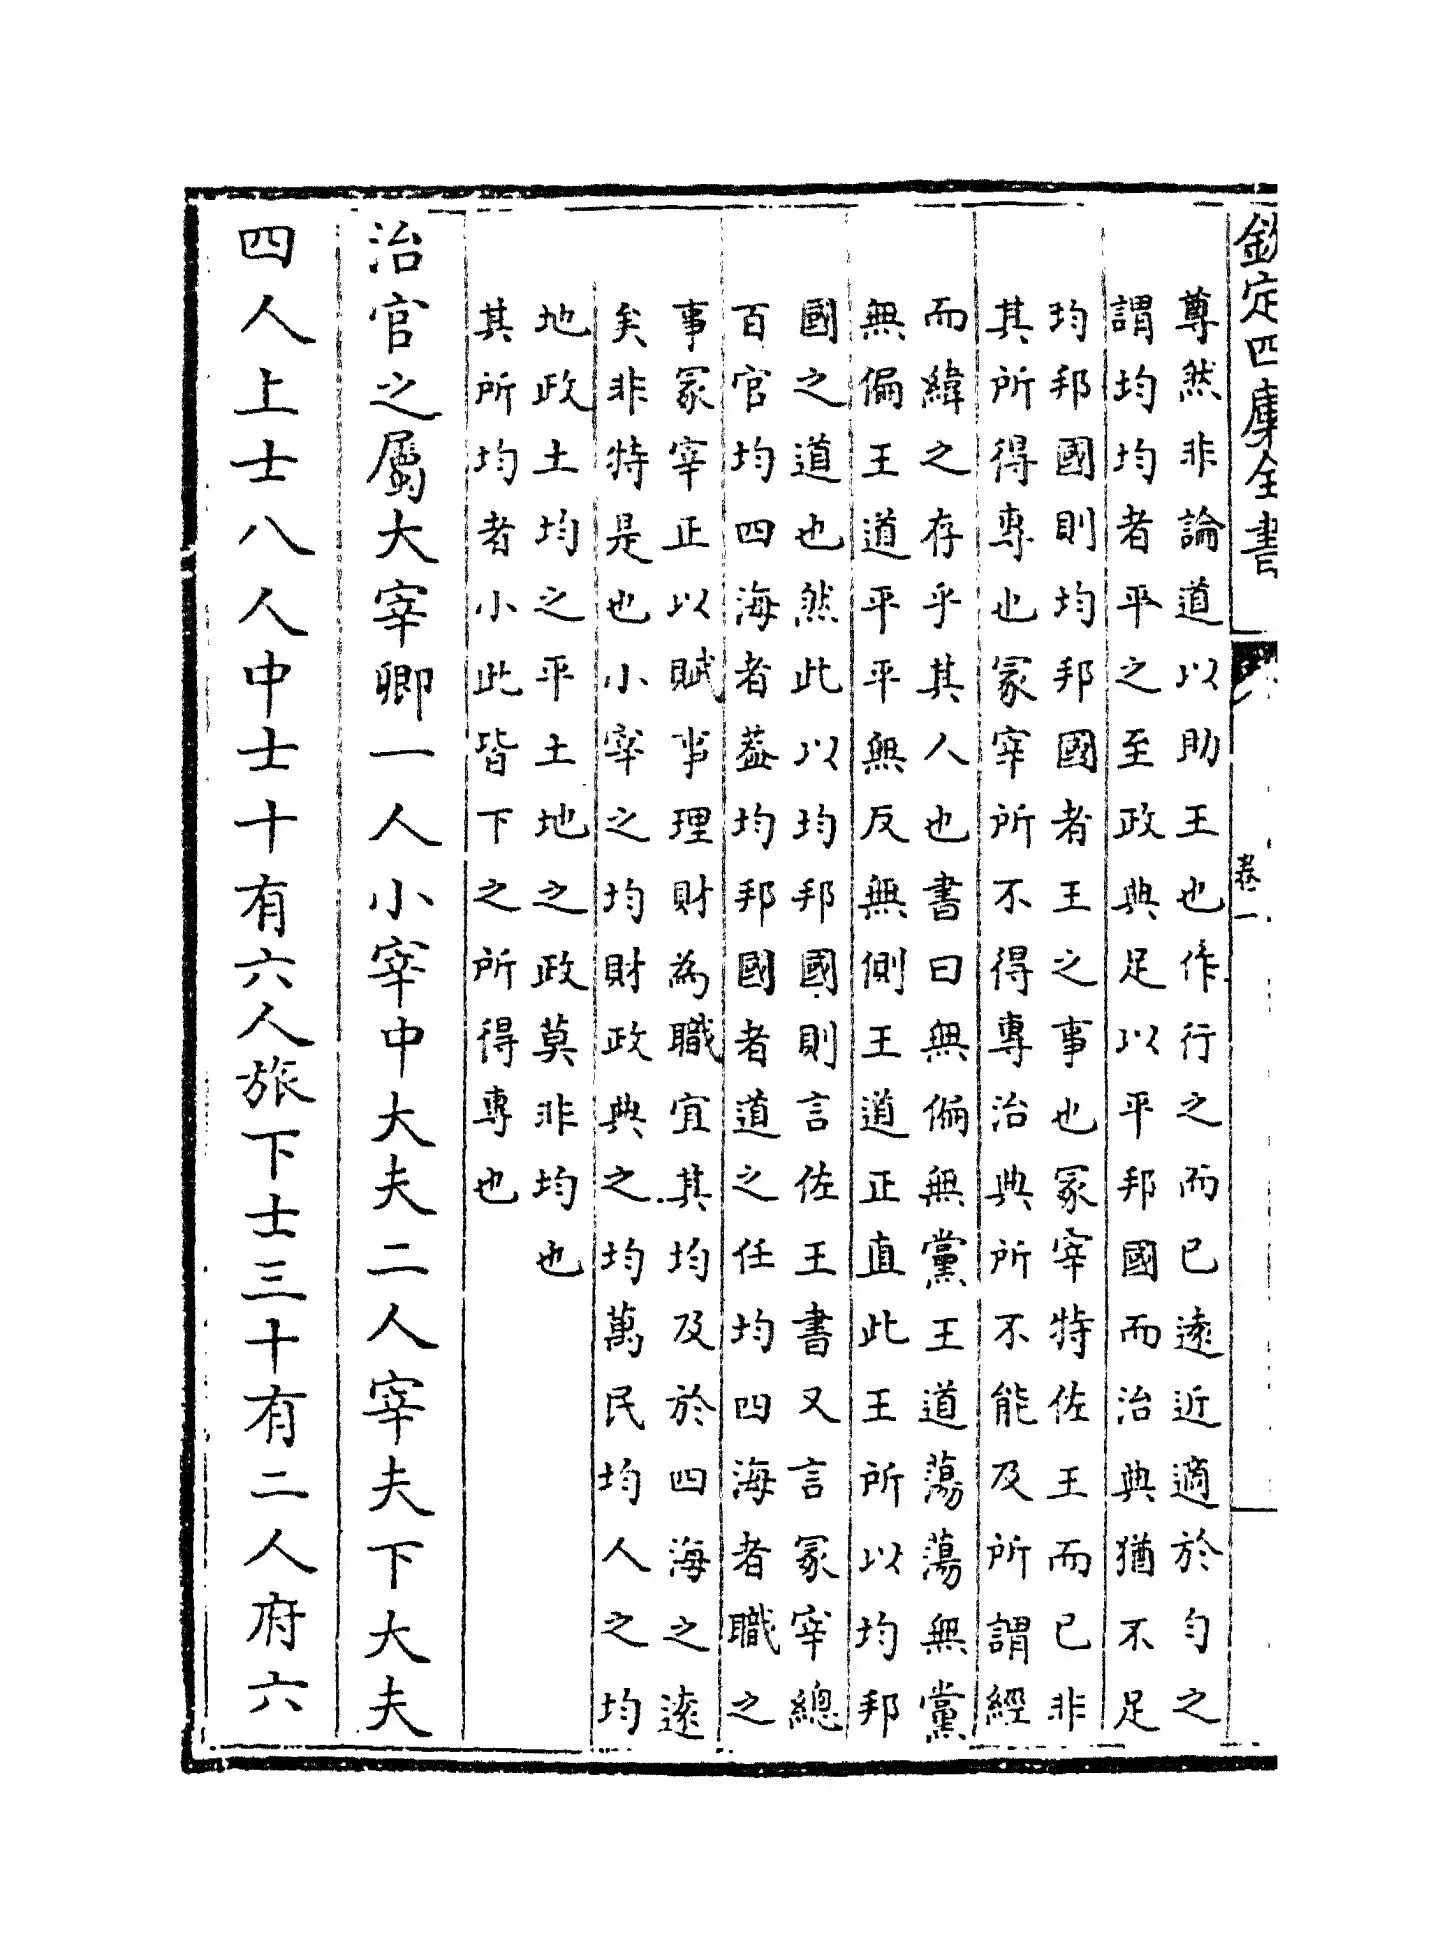 欽定四庫全書
卷一
尊然非論道以助王也作行之而已遠近適於勻之
謂均均者平之至政典足以平邦國而治典猶不足
均邦國則均邦國者王之事也冢宰特佐王而已非
其所得專也冢宰所不得專治典所不能及所謂經
而緯之存乎其人也書曰無偏無黨王道蕩蕩無黨
無偏王道平平無反無側王道正直此王所以均邦
國之道也然此以均邦國則言佐王書又言冢宰總
百官均四海者葢均邦國者道之任均四海者職之
事冢宰正以賦事理財為職宜其均及於四海之遠
矣非特是也小宰之均財政典之均萬民均人之均
地政土均之平土地之政莫非均也
其所均者小此皆下之所得專也
治官之屬大宰卿一人小宰中大夫二人宰夫下大夫
四人上士八人中士十有六人旅下士三十有二人府六